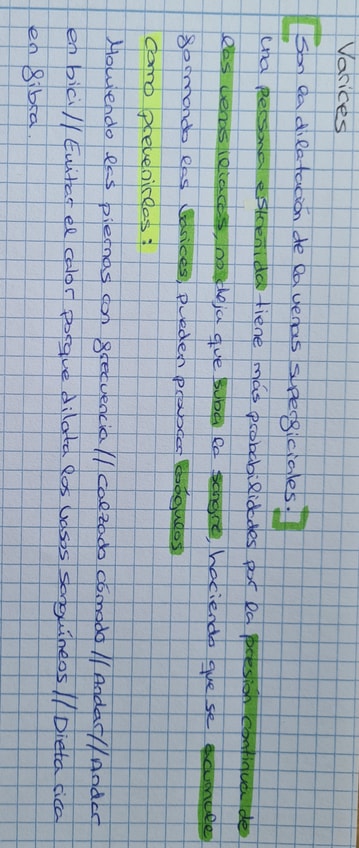 Varices
[Son la dilatación de la venas superficiales.]
Una persona estreñida tiene más probabilidades por la presión continua de
las venas iliacas, no deja que suba la sangre, haciendo que se acumule
formando las varices, pueden provocar coágulos
Como prevenirlas:
Moviendo las piernas con frecuencia // Calzado cómodo // Andar // Andar
en bici // Evitar el calor porque dilata los vasos sanguíneos // Dieta rica
en fibra.